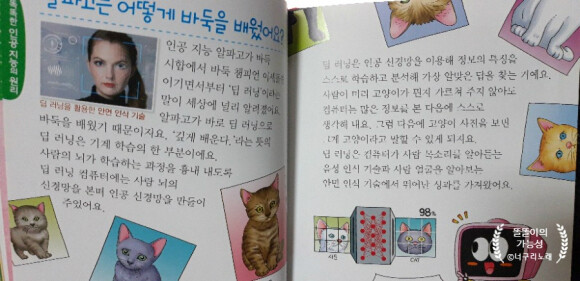 똑똑한 인공 지능의 원리
알파고는 어떻게 바둑을 배웠어요?
딥 러닝을 활용한 안면 인식 기술
인공 지능 알파고가 바둑
시합에서 바둑 챔피언 이세돌을
이기면서부터 '딥 러닝'이라는
말이 세상에 널리 알려졌어요.
알파고가 바로 딥 러닝으로
바둑을 배웠기 때문이지요. '깊게 배운다.'라는 뜻의
딥 러닝은 기계 학습의 한 부분이에요.
사람의 뇌가 학습하는 과정을 흉내 내도록
딥 러닝 컴퓨터에는 사람 뇌의
신경망을 본떠 인공 신경망을 만들어
주었어요.
딥 러닝은 인공 신경망을 이용해 정보의 특징을
스스로 학습하고 분석해 가장 알맞은 답을 찾는 기술예요.
사람이 미리 고양이가 뭔지 가르쳐 주지 않아도
컴퓨터는 많은 정보를 본 다음에 스스로
생각해 내요. 그럼 다음에 고양이 사진을 보면
'이게 고양이'라고 말할 수 있게 되지요.
딥 러닝은 컴퓨터가 사람 목소리를 알아듣는
음성 인식 기술과 사람 얼굴을 알아보는
안면 인식 기술에서 뛰어난 성과를 가져왔어요.
98%
CAT
똘똘이의
가능성
©너구리노래